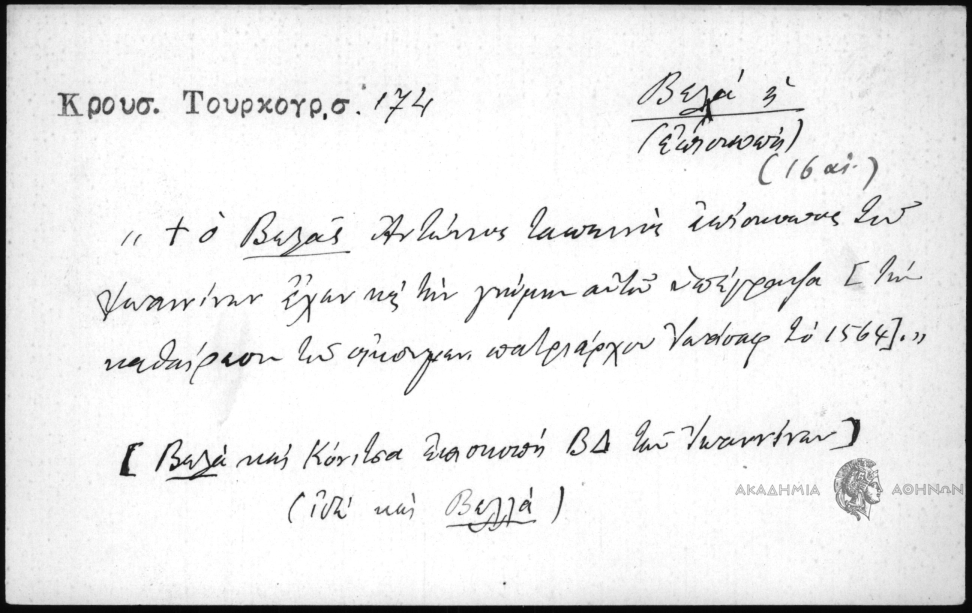 Κρουσ. Τουρκογρ,σ. 174
Βελά ἡ
(ἐπισκοπή)
(16 αἰ.)
„ + ὁ Βελᾶς Ἀντώνιος ταπεινὸς ἐπίσκοπος τοῦ
Ἰωαννίνων ἔχων καὶ τὴν γνώμην αὐτοῦ ὑπέγραψα [τὴν
καθαίρεσιν τοῦ οἰκουμεν. πατριάρχου Ἰωάσαφ τὸ 1564].„
[Βελά καὶ Κόνιτσα ἐπισκοπή ΒΔ τῶν Ἰωαννίνων]
(ἰδὲ καὶ Βελλά)
ΑΚΑΔΗΜΙΑ ΑΘΗΝΩΝ